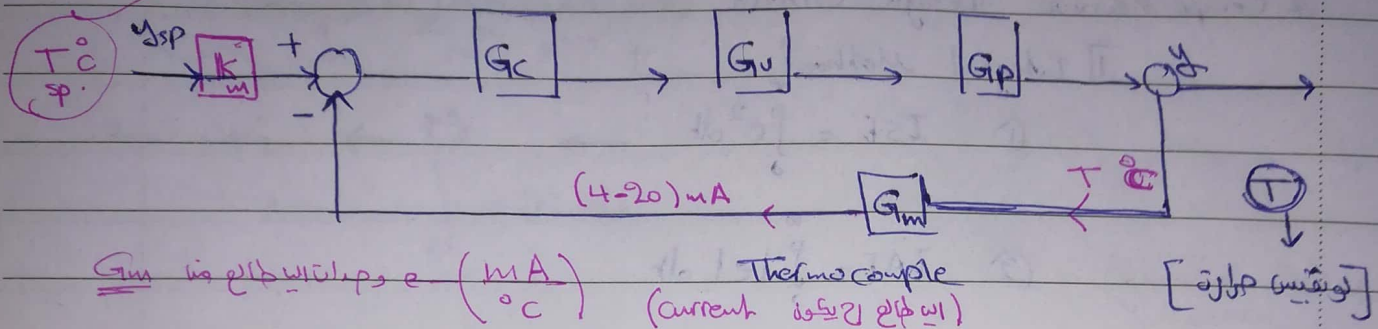 T°C
sp.
ysp
Km
+
-
Gc
Gv
Gp
y
(4-20) mA
Gm
T °C
T
Gm وحدات الـ طالع من (mA/°C)
Thermocouple
(current الـ طالع بكون)
[لو بقيس حرارة]